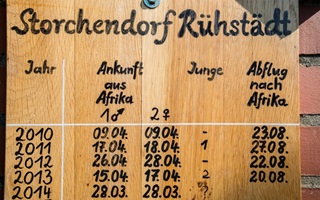 Storchendorf Rühstädt
Jahr Ankunft Junge Abflug
aus nach
Afrika Afrika
1♂ 2♀
2010 09.04. 09.04. - 23.08.
2011 17.04. 18.04. 1 27.08.
2012 26.04. 28.04. - 22.08.
2013 15.04. 17.04. 2 20.08.
2014 28.03. 28.03.